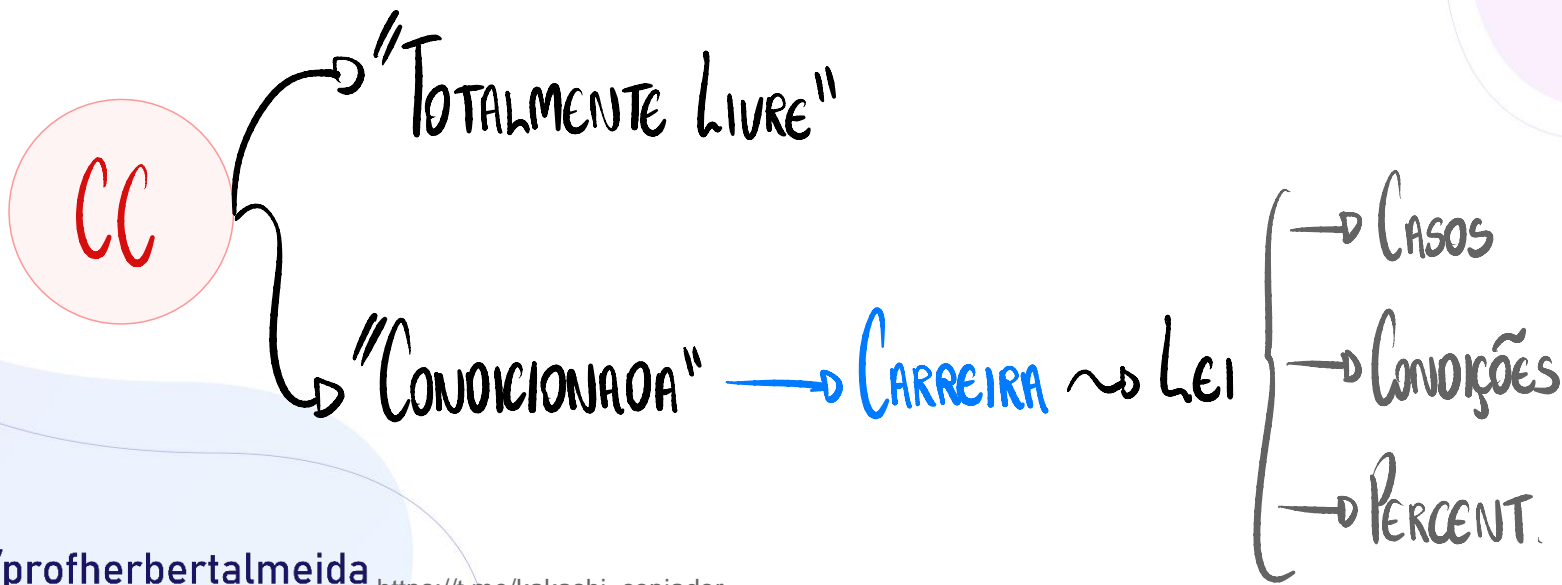 "TOTALMENTE LIVRE"
CC
CASOS
"CONDICIONADA" CARREIRA LEI
CONDIÇÕES
PERCENT.
/profherbertalmeida